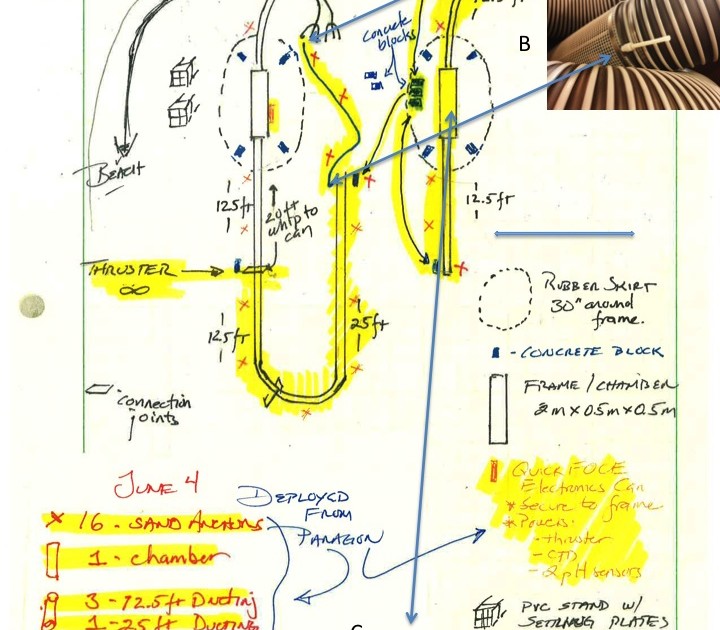 12.5ft
Concrete
blocks
B
BEACH
12.5ft
20ft
whip to
can
12.5ft
THRUSTER
RUBBER SKIRT
30" around
frame.
12.5ft
25ft
- CONCRETE BLOCK
FRAME/CHAMBER
2m x 0.5m x 0.5m
- connection
points
JUNE 4
DEPLOYED
FROM
PARAGON
QUICK FOCE
Electronics Can
* Secure to frame
* Powers:
- thruster
- CTD
- 2 pH sensors
x 16 - SAND ANCHORS
1 - chamber
3 - 12.5ft Ducting
1 - 25ft Ducting
PVC STAND W/
SETTLING PLATES
C